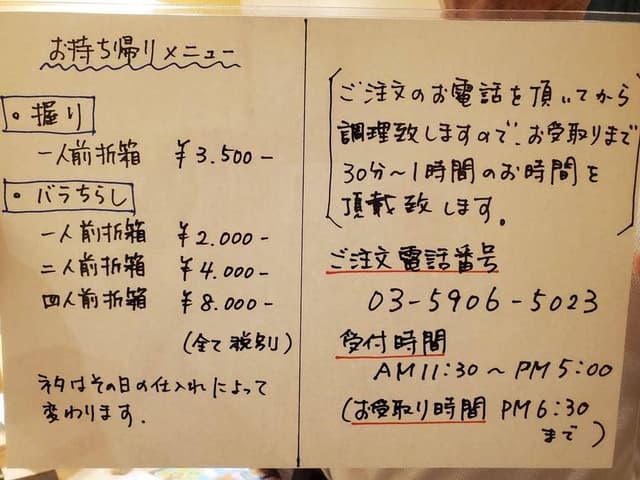 お持ち帰りメニュー
・握り
一人前折箱 ¥3.500-
・バラちらし
一人前折箱 ¥2.000-
二人前折箱 ¥4.000-
四人前折箱 ¥8.000-
(全て税別)
ネタはその日の仕入れによって
変わります.
ご注文のお電話を頂いてから
調理致しますので、お受取りまで
30分〜1時間のお時間を
頂戴致します。
ご注文電話番号
03-5906-5023
受付時間
AM11:30〜PM5:00
(お受取り時間 PM6:30
まで)